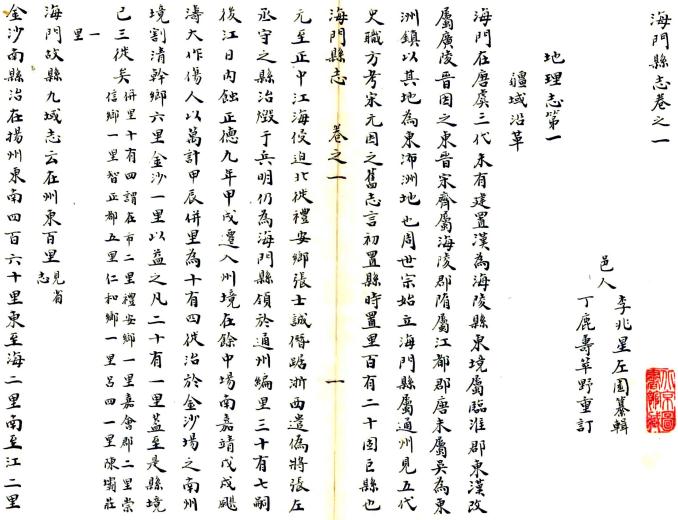 海門縣志卷之一
邑人 李兆星左園纂輯
丁鹿壽苹野重訂
地理志第一
疆域沿革
海門在唐虞三代未有建置漢為海陵縣東境屬臨淮郡東漢改
屬廣陵晉因之東晉宋齊屬海陵郡隋屬江都郡唐末屬吳為東
洲鎮以其地為東沛洲地也周世宗始立海門縣屬通州見五代
史職方考宋元因之舊志言初置縣時置里百有二十固巨縣也
海門縣志 卷之一 一
元至正中江海侵迫北徙禮安鄉張士誠僭踞浙西遣偽將張左
丞守之縣治燬于兵明仍為海門縣領於通州編里三十有七嗣
後江日內蝕正德九年甲戌遷入州境在餘中場南嘉靖戊戌颶
濤大作傷人以萬計甲辰併里為十有四徙治於金沙場之南州
境割清幹鄉六里金沙一里以益之凡二十有一里蓋至是縣境
已三徙矣併里十有四謂在市二里禮安鄉一里嘉會郡二里崇
信鄉一里智正都五里仁和鄉一里呂四一里陳壩莊
一里
海門故縣九域志云在州東百里見省志
金沙南縣治在揚州東南四百六十里東至海二里南至江二里